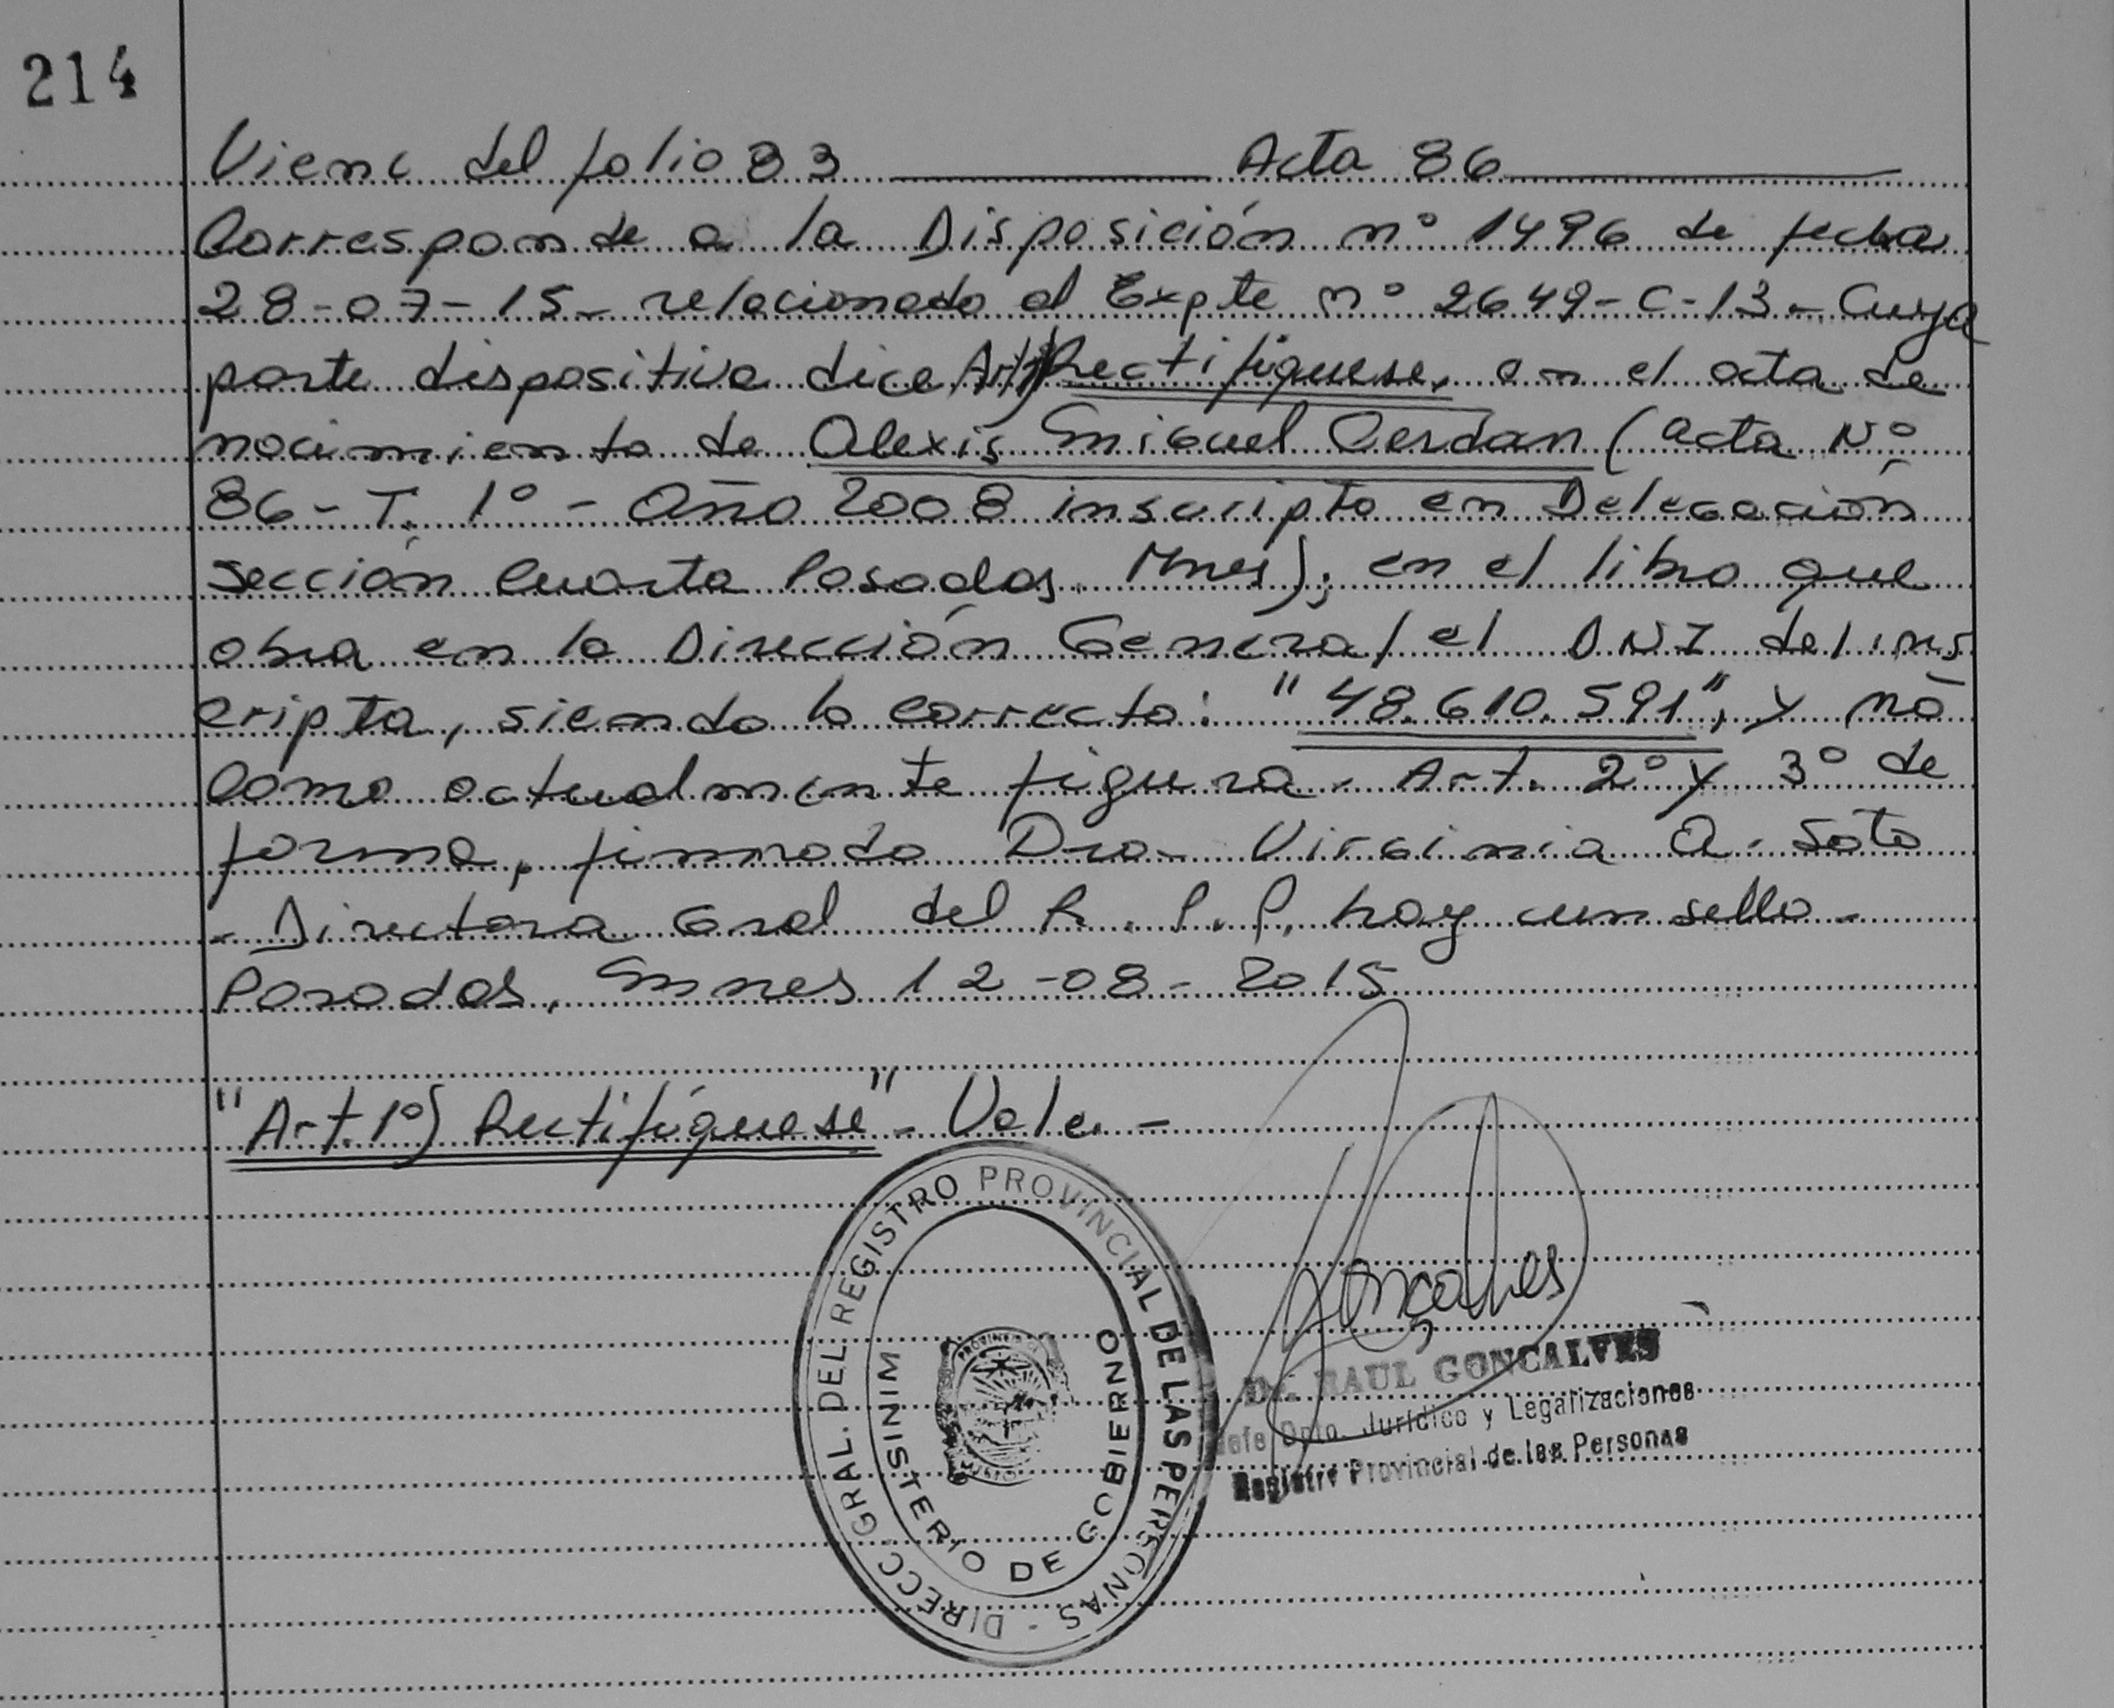 214
Viene del folio 83 Acta 86
Corresponde a la Disposición nº 1496 de fecha
28-07-15- relacionado al Expte nº 2649-C-13- Cuya
parte dispositiva dice Art 1º) Rectifíquese, en el acta de
nacimiento de Alexis Miguel Cerdan (acta Nº
86- T. 1º - Año 2008 inscripto en Delegación
Sección Cuarta Posadas. Mnes); en el libro que
obra en la Dirección General el DNI del ins
cripto, siendo lo correcto: "48.610.591", y no
como actualmente figura. Art. 2º y 3º de
forma, firmado Dra- Virginia A. Soto
- Directora Gral del R.P.P. hay un sello-
Posadas, Mnes 12-08-2015
"Art. 1º) Rectifíquese" - Vale. -
DIRECC. GRAL. DEL REGISTRO PROVINCIAL DE LAS PERSONAS -
MINISTERIO DE GOBIERNO
Gonçalves
Dr. RAUL GONCALVES
Jefe Dpto. Jurídico y Legalizaciones
Registro Provincial de las Personas